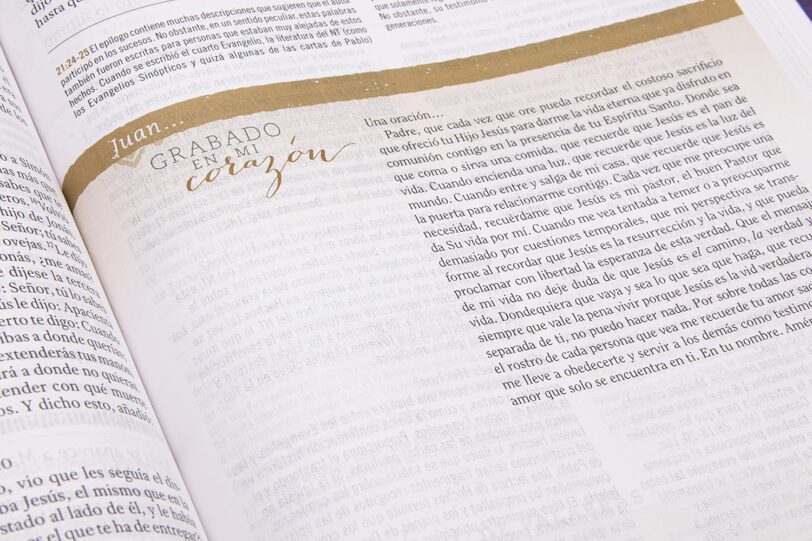 hasta qu
21:24-25 El epílogo contiene muchas descripciones que sugieren que el autor
participó en los sucesos. No obstante, en un sentido peculiar, estas palabras
también fueron escritas para personas que estaban muy alejadas de estos
hechos. Cuando se escribió el cuarto Evangelio, la literatura del NT (como
los Evangelios Sinópticos y quizá algunas de las cartas de Pablo)
que solamente
No obstante, su testimonio
generaciones.
Juan...
GRABADO
EN MI
corazón
Una oración...
Padre, que cada vez que ore pueda recordar el costoso sacrificio
que ofreció tu Hijo Jesús para darme la vida eterna que ya disfruto en
comunión contigo en la presencia de tu Espíritu Santo. Donde sea
que coma o sirva una comida, que recuerde que Jesús es el pan de
vida. Cuando encienda una luz, que recuerde que Jesús es la luz del
mundo. Cuando entre y salga de mi casa, que recuerde que Jesús es
la puerta para relacionarme contigo. Cada vez que me preocupe una
necesidad, recuérdame que Jesús es mi pastor, el buen Pastor que
da Su vida por mí. Cuando me vea tentada a temer o a preocuparme
demasiado por cuestiones temporales, que mi perspectiva se trans-
forme al recordar que Jesús es la resurrección y la vida, y que pueda
proclamar con libertad la esperanza de esta verdad. Que el mensaj
de mi vida no deje duda de que Jesús es el camino, la verdad
vida. Dondequiera que vaya y sea lo que sea que haga, que recu
siempre que vale la pena vivir porque Jesús es la vid verdadera
separada de ti, no puedo hacer nada. Por sobre todas las co
el rostro de cada persona que vea me recuerde tu amor sac
me lleve a obedecerte y servir a los demás como testim
amor que solo se encuentra en ti. En tu nombre. Amé
a Simó
más que
sabes que
Volvió
hijo de Jonás
Señor; tú sabe
ovejas. 17 Le dijo
onás, ¿me amas
dijese la tercera
Señor, tú lo sabe
ús le dijo: Apacienta
erto te digo: Cuando
ibas a donde querías
extenderás tus manos
rá a donde no quieras.
tender con qué muerte
os. Y dicho esto, añadió:
o, vio que les seguía el dis-
ba Jesús, el mismo que en la
stado al lado de él, y le había
es el que te ha de entregar